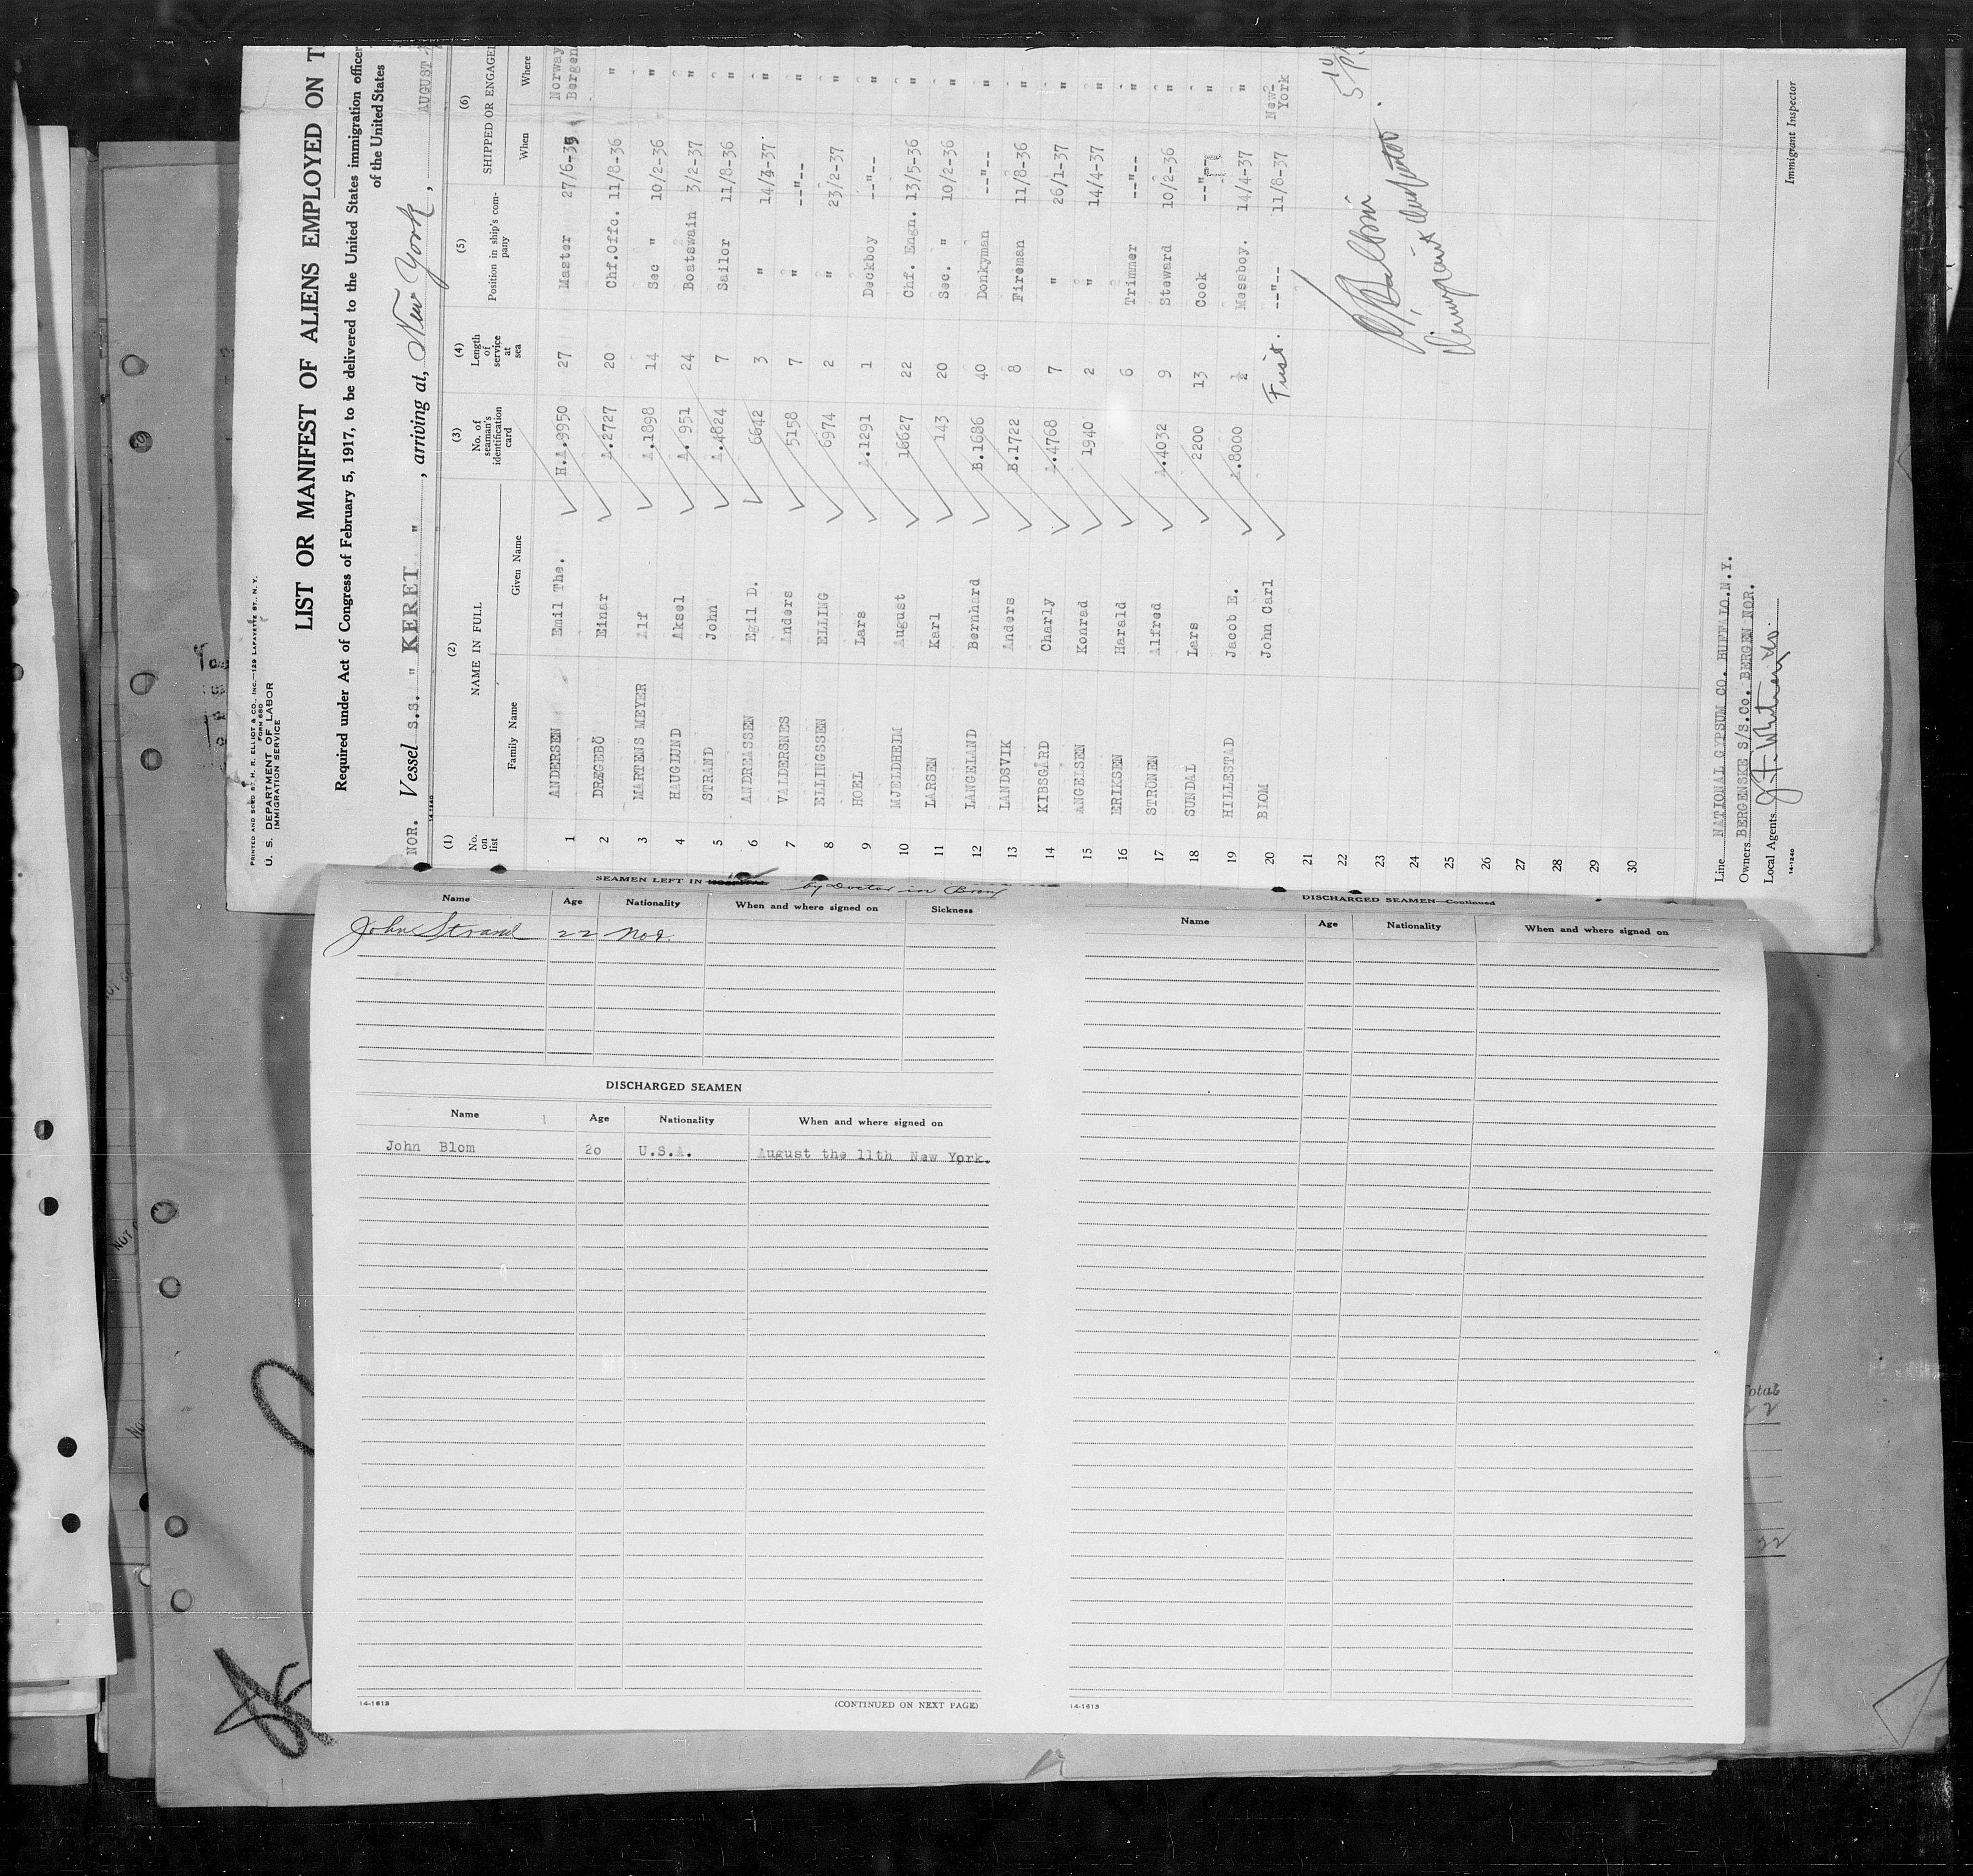 PRINTED AND SOLD BY H. R. ELLIOT & CO., INC.—129 LAFAYETTE ST., N. Y.
FORM 680
U. S. DEPARTMENT OF LABOR
IMMIGRATION SERVICE
LIST OR MANIFEST OF ALIENS EMPLOYED ON T
Required under Act of Congress of February 5, 1917, to be delivered to the United States immigration officer
of the United States
NOR. Vessel S.S. " KERET ", arriving at, New York, AUGUST
14-1240
(1) (2) (3) (4) (5) (6)
No. on list NAME IN FULL No. of seaman's identification card Length of service at sea Position in ship's company SHIPPED OR ENGAGED
Family Name Given Name When Where
1 ANDERSEN Emil The. H.A.9950 27 Master 27/6-35 Norway Bergen
2 DRÆGEBÖ Einar A.2727 20 Chf.Offc. 11/8-36 "
3 MARTENS MEYER Alf A.1898 14 Sec " 10/2-36 "
4 HAUGLUND Aksel A.951 24 Boatswain 3/2-37 "
5 STRAND John A.4824 7 Sailor 11/8-36 "
6 ANDREASSEN Egil D. 6642 3 " 14/4-37. "
7 VALDERSNES Anders 5158 7 " --"-- "
8 ELLINGSSEN ELLING 6974 2 " 23/2-37 "
9 HOEL Lars A.1291 1 Deckboy --"-- "
10 MJELDHEIM August 16627 22 Chf. Engn. 13/5-36 "
11 LARSEN Karl 143 20 Sec. " 10/2-36 "
12 LANGELAND Bernhard B.1686 40 Donkyman --"-- "
13 LANDSVIK Anders B.1722 8 Fireman 11/8-36 "
14 KIBSGÅRD Charly A.4768 7 " 26/1-37 "
15 ANGELSEN Konrad 1940 2 " 14/4-37 "
16 ERIKSEN Harald 6 Trimmer --"-- "
17 STRÖNEN Alfred A.4032 9 Steward 10/2-36 "
18 SUNDAL Lars 2200 13 Cook --"-- "
19 HILLESTAD Jacob E. A.8000 ½ Messboy. 14/4-37 "
20 BLOM John Carl First. --"-- 11/8-37 New-York
21
22
23
24
25
26
27
28
29
30
Line NATIONAL GYPSUM CO. BUFFALO.N.Y.
Owners BERGENSKE S/S.Co. BERGEN NOR.
Local Agents
Immigrant Inspector
14-1240
SEAMEN LEFT IN HOSPITAL by Doctor in Bronx
Name Age Nationality When and where signed on Sickness
John Strand 22 Nor.
DISCHARGED SEAMEN
Name Age Nationality When and where signed on
John Blom 20 U.S.A. August the 11th New York.
14-1613
(CONTINUED ON NEXT PAGE)
DISCHARGED SEAMEN—Continued
Name Age Nationality When and where signed on
14-1613
Total
22
22